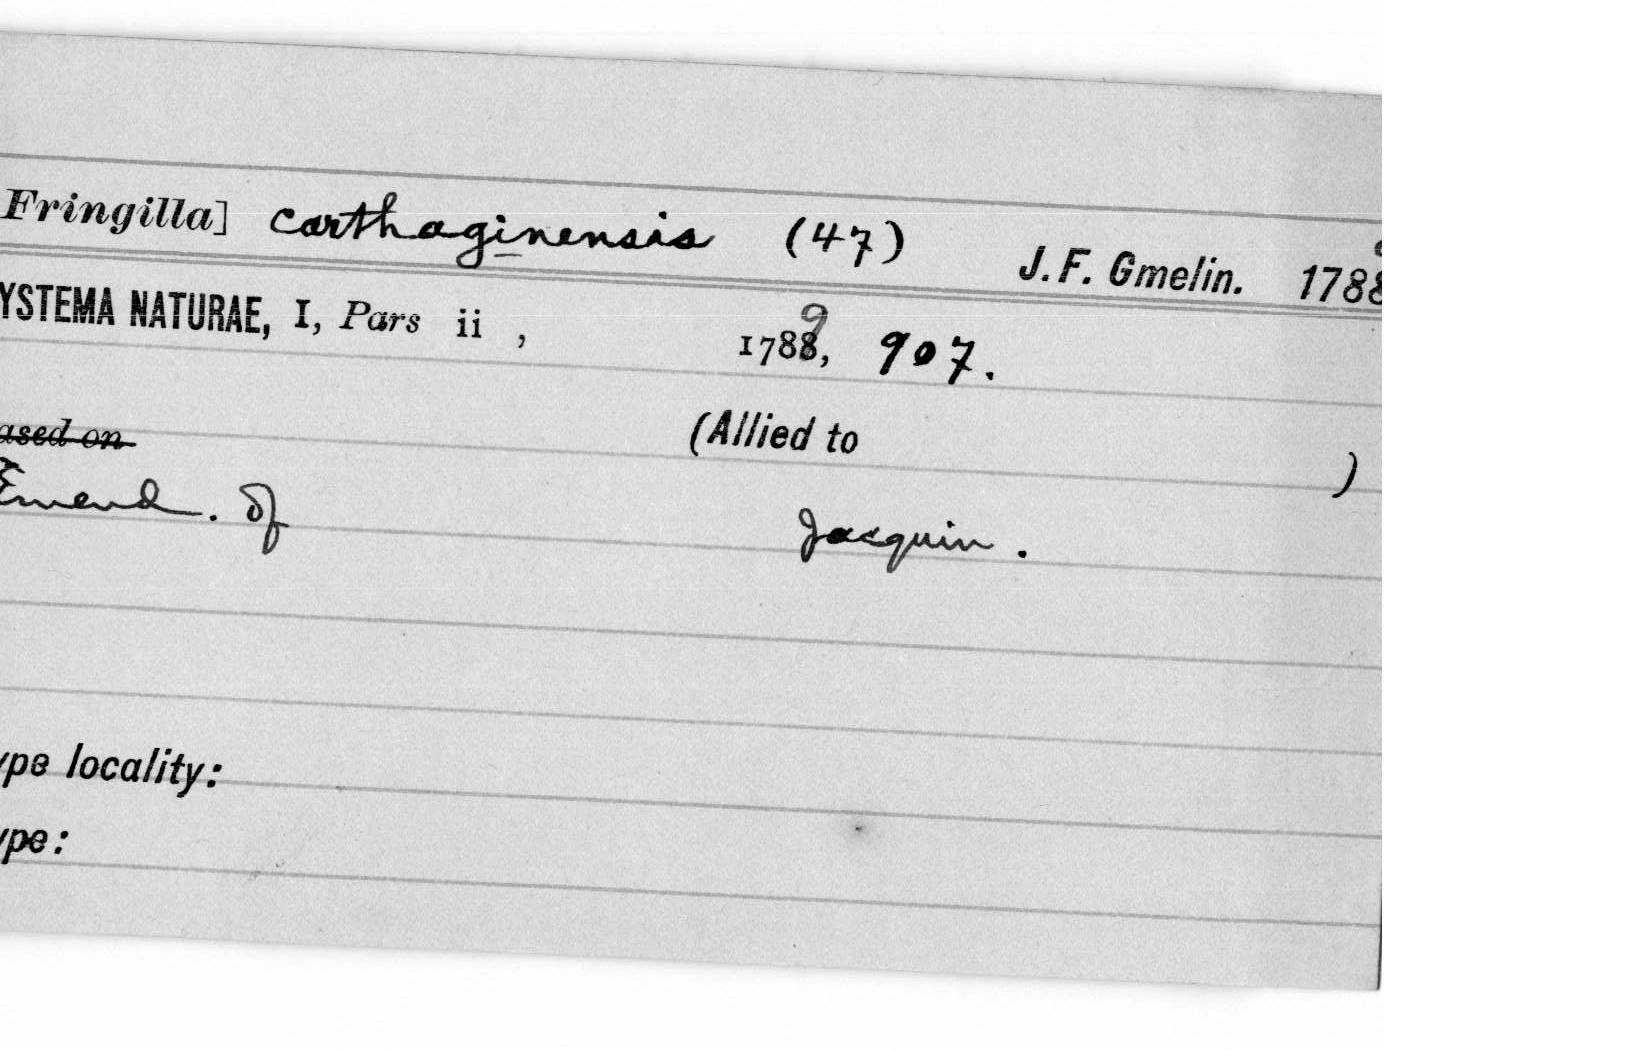 Fringilla] carthaginensis (47) J. F. Gmelin. 1788
YSTEMA NATURAE, I, Pars ii , 1788, 9 907.
ased on (Allied to )
Emend. of Jacquin.
ype locality:
ype: